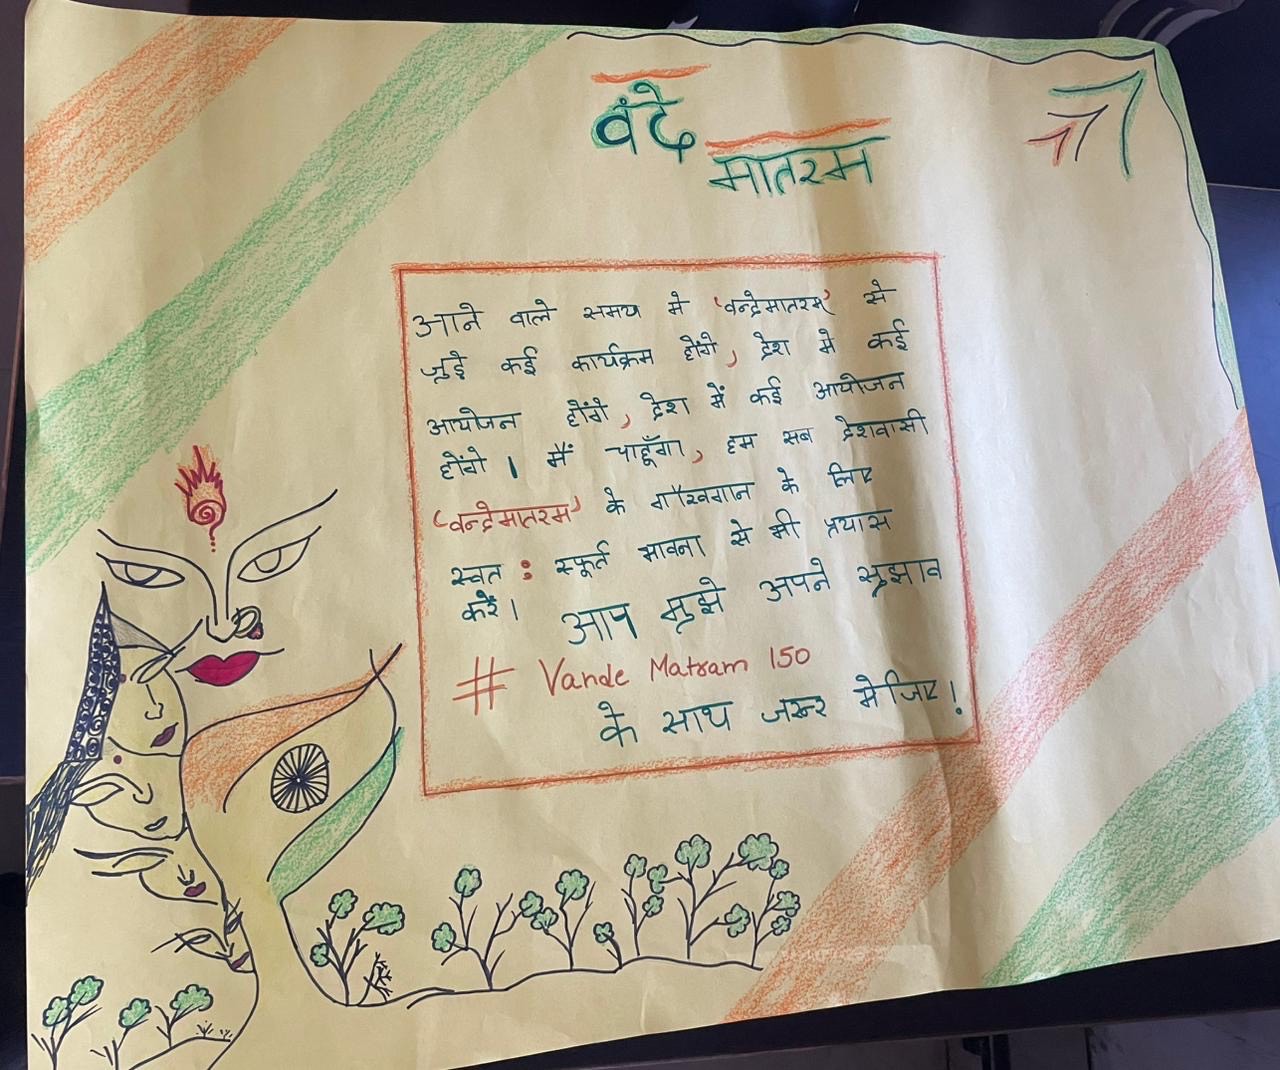 वंदे
मातरम
आने वाले समय मे 'वन्देमातरम' से
जुड़े कई कार्यक्रम होंगे, देश मे कई
आयोजन होंगे, देश में कई आयोजन
होंगे । मैं चाहूँगा, हम सब देशवासी
'वन्देमातरम' के गौरवगान के लिए
स्वत : स्फूर्त भावना से भी प्रयास
करें । आप मुझे अपने सुझाव
# Vande Matram 150
के साथ जरूर भेजिए !